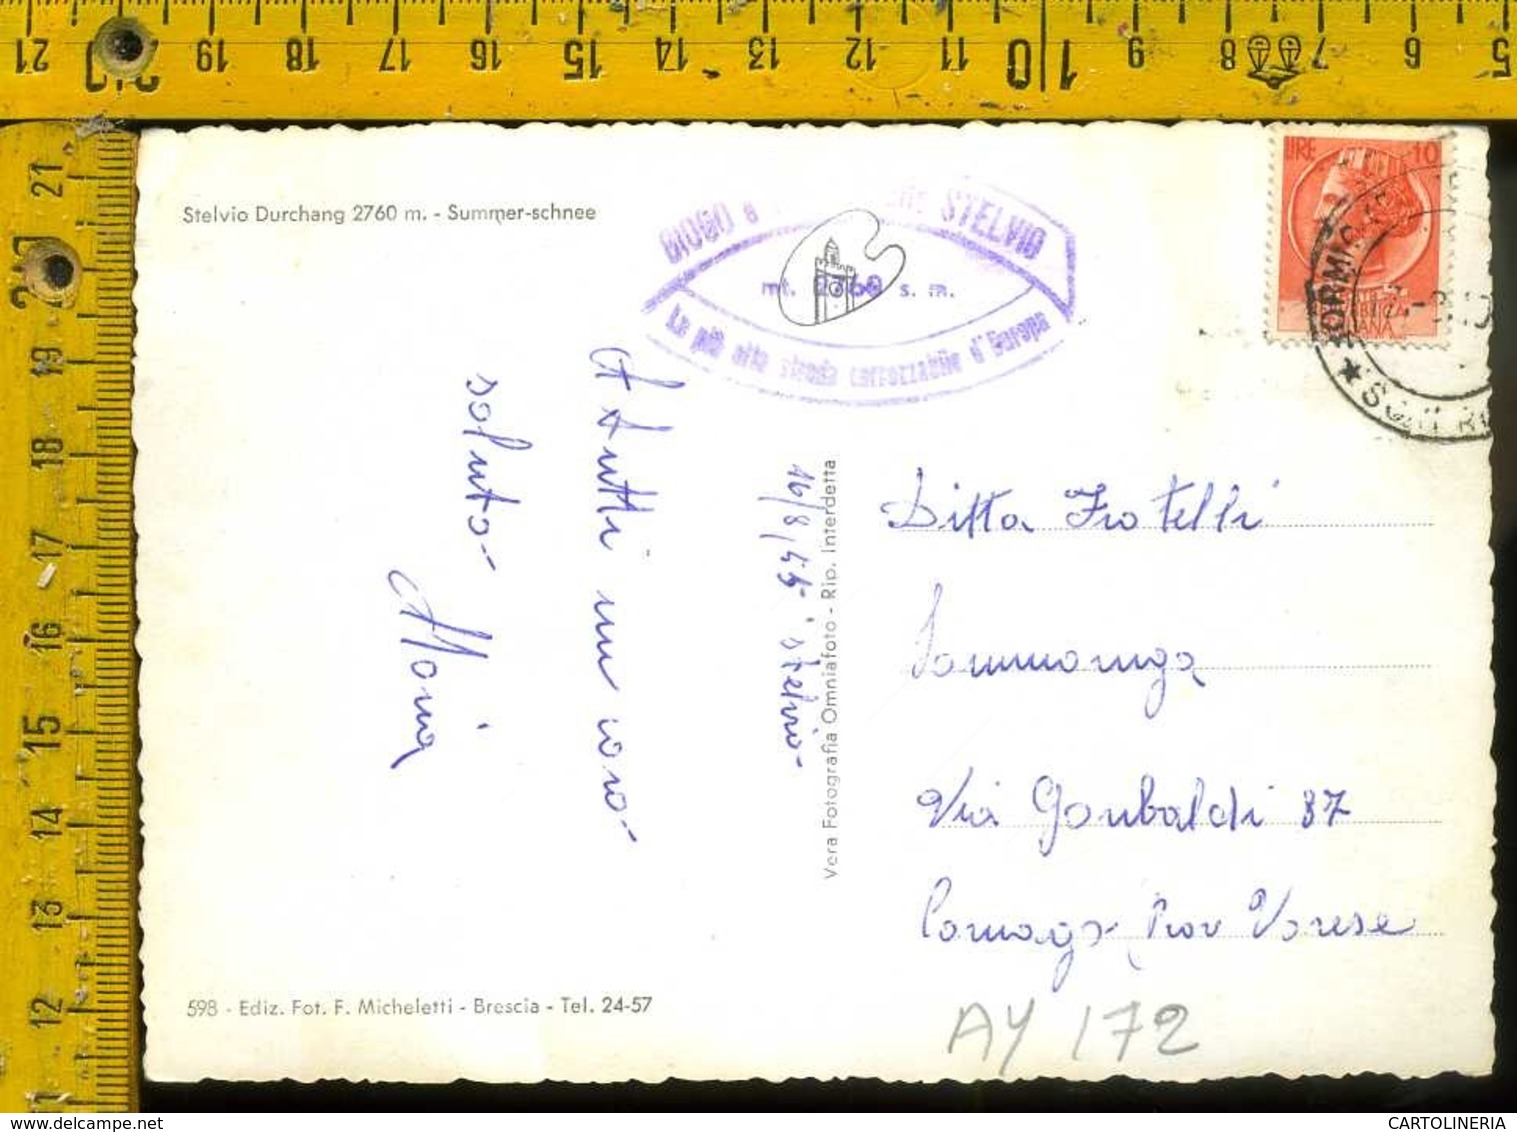 Stelvio Durchang 2760 m. - Summer-schnee
GIOGO STELVIO
mt. 2760 s. m.
La più alta strada carrozzabile d'Europa
LIRE 10
16/8/55 Stelvio-
A tutti un caro-
saluto-
Maria
Vera Fotografia Omniafoto - Rip. Interdetta
Ditta Fratelli
Via Garibaldi 37
Prov Varese
598 - Ediz. Fot. F. Micheletti - Brescia - Tel. 24-57
AY 172
21 20 19 18 17 16 15 14 13 12 11 10 9 8 7 6 5
21 20 19 18 17 16 15 14 13 12 11
CARTOLINERIA